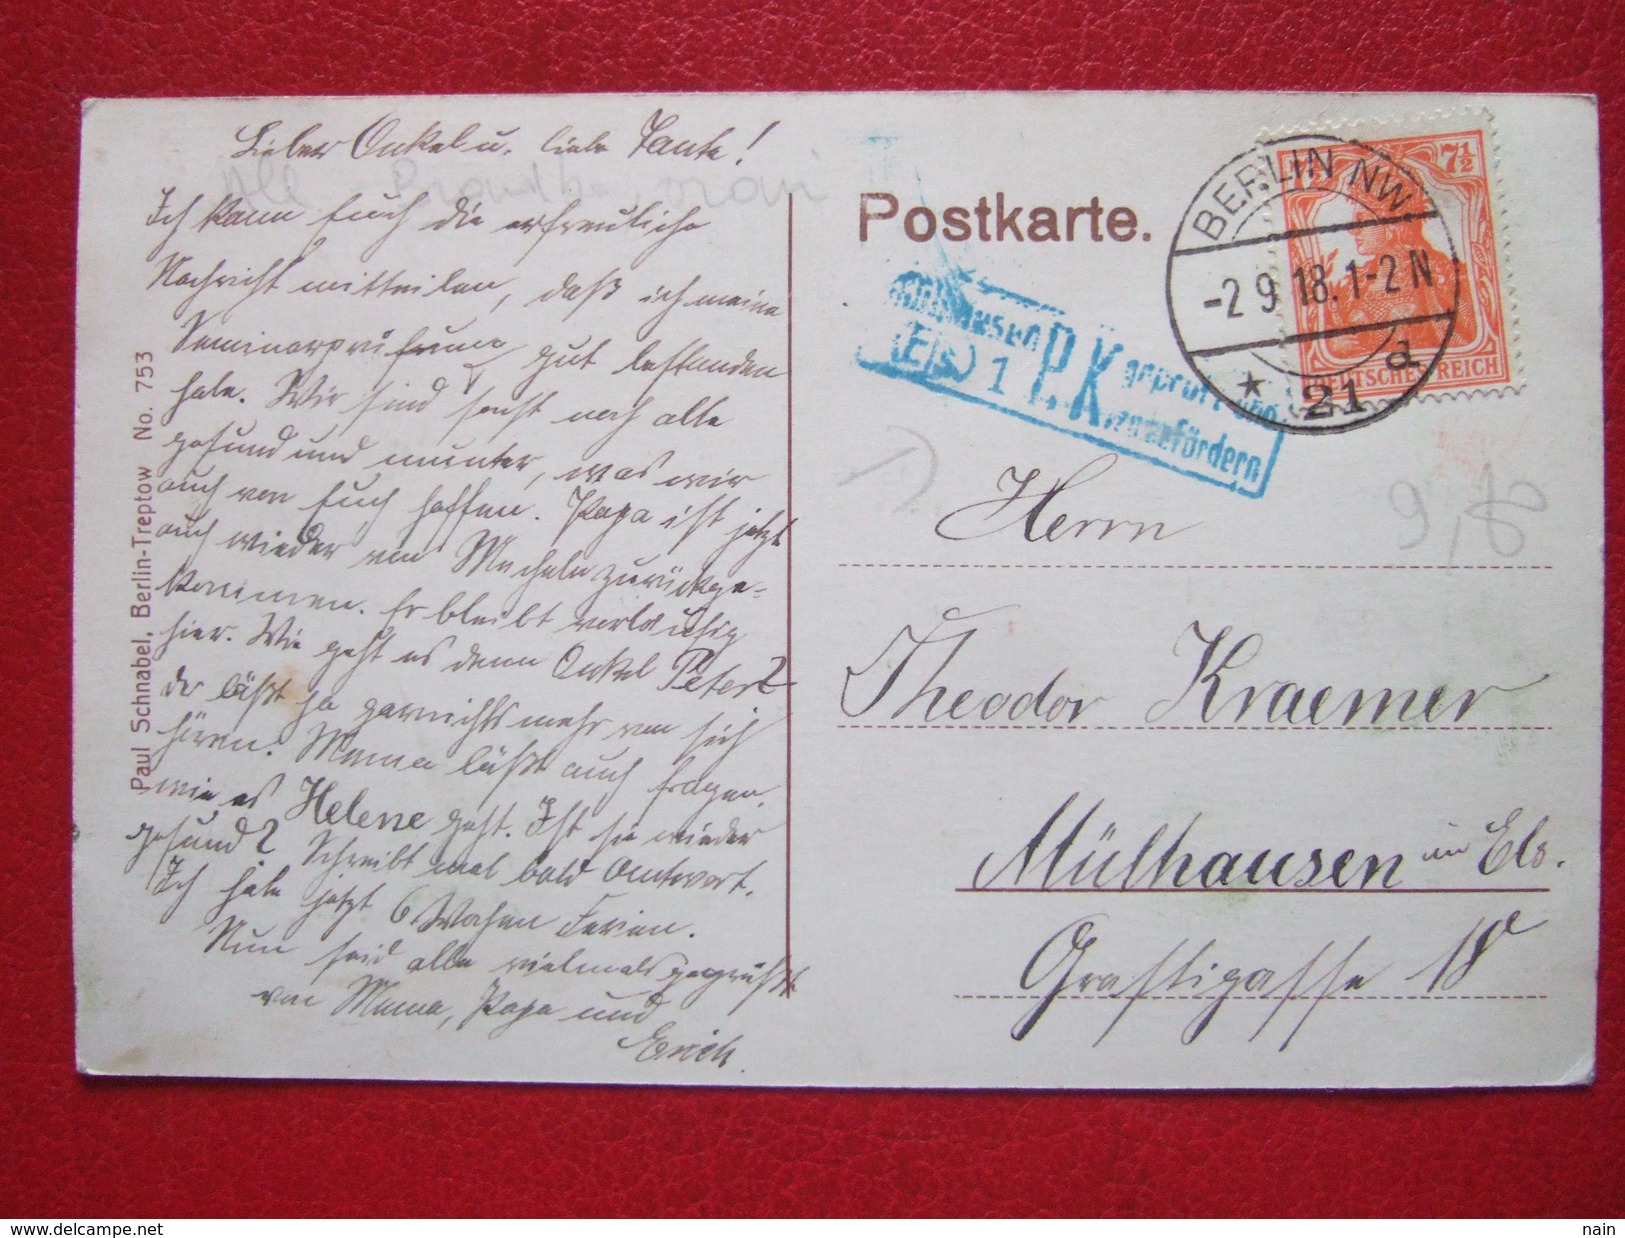 Lieber Onkel u. liebe Tante!
Ich kann Euch die erfreuliche
Nachricht mitteilen, daß ich meine
Seminarprüfung gut bestanden
habe. Wir sind sonst noch alle
gesund und munter, was wir
auch von Euch hoffen. Papa ist jetzt
auch wieder von Mecheln zurückge-
kommen. Er bleibt vorläufig
hier. Wie geht es denn Onkel Peter?
Der läßt ja garnichts mehr von sich
hören. Mama läßt auch fragen,
wie es Helene geht. Ist sie wieder
gesund? Schreibt mal bald Antwort.
Ich habe jetzt 6 Wochen Ferien.
Nun seid alle vielmals gegrüßt
von Mama, Papa und
Erich.
Paul Schnabel, Berlin-Treptow No. 753
Postkarte.
Mülhausen
(Els.) 1 P.K. geprüft und
zu befördern
BERLIN NW.
-2 9 18. 1-2 N
* 21 d
7½ 7½
DEUTSCHES REICH
Herrn
Theodor Kraemer
Mülhausen im Els.
Graftigasse 18
9,80
delcampe.net
nain